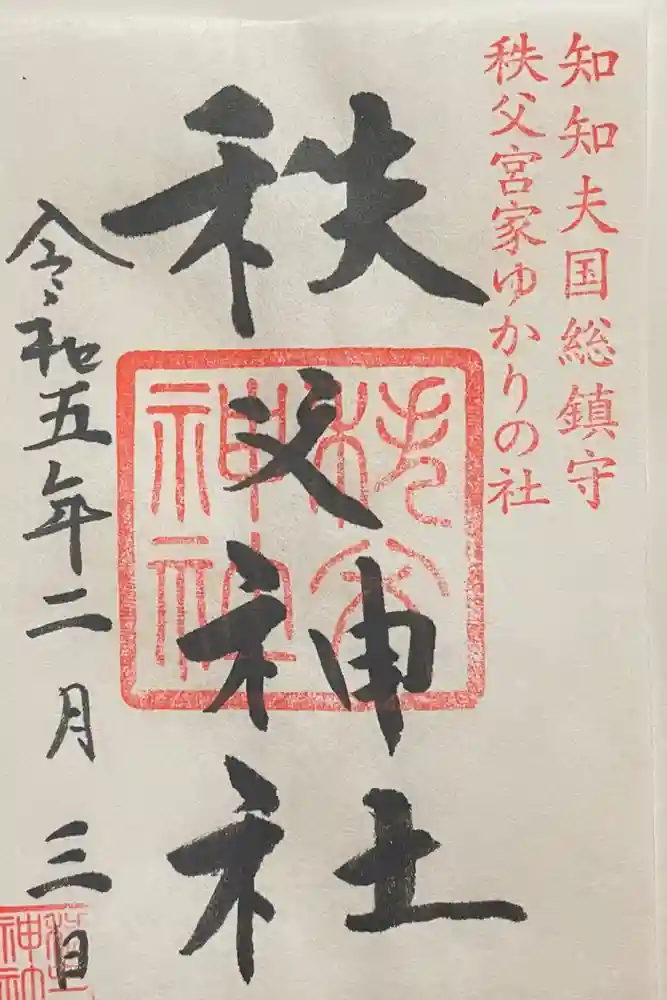 知知夫国総鎮守
秩父宮家ゆかりの社
秩父神社
秩父神社
令和五年二月三日
神社